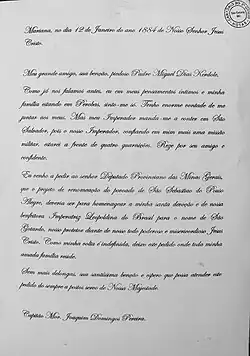 Mariana, no dia 12 de Janeiro do ano 1884 de Nosso Senhor Jesus
Cristo.
Meu grande amigo, sua benção, piedoso Padre Miguel Dias
Como já nos falamos antes, eu em meus pensamentos íntimos e minha
família estando em Perobas, sinto-me só. Tenho enorme vontade de me
juntar aos meus. Mas meu Imperador manda-me a conter em São
Salvador, pois o nosso Imperador, confiando em mim mais uma missão
militar, estarei a frente de quatro guarnições. Reze por seu amigo e
confidente.
Eu venho a pedir ao senhor Deputado Provinciano das Minas Gerais,
que o projeto de renomeação do povoado de São Sebastião do Pouso
Alegre, deveria ser para homenagear a minha santa devoção e de nossa
benfeitora Imperatriz Leopoldina do Brasil para o nome de São
Gotardo, nosso protetor diante de nosso todo poderoso e misericordioso Jesus
Cristo. Como minha volta é indefinida, deixo este pedido onde toda minha
amada família reside.
Sem mais delongas, sua santíssima benção e espero que possa atender este
pedido do sempre a postos servo de Nossa Majestade.
Capitão Mor. Joaquim Domingos Pereira.